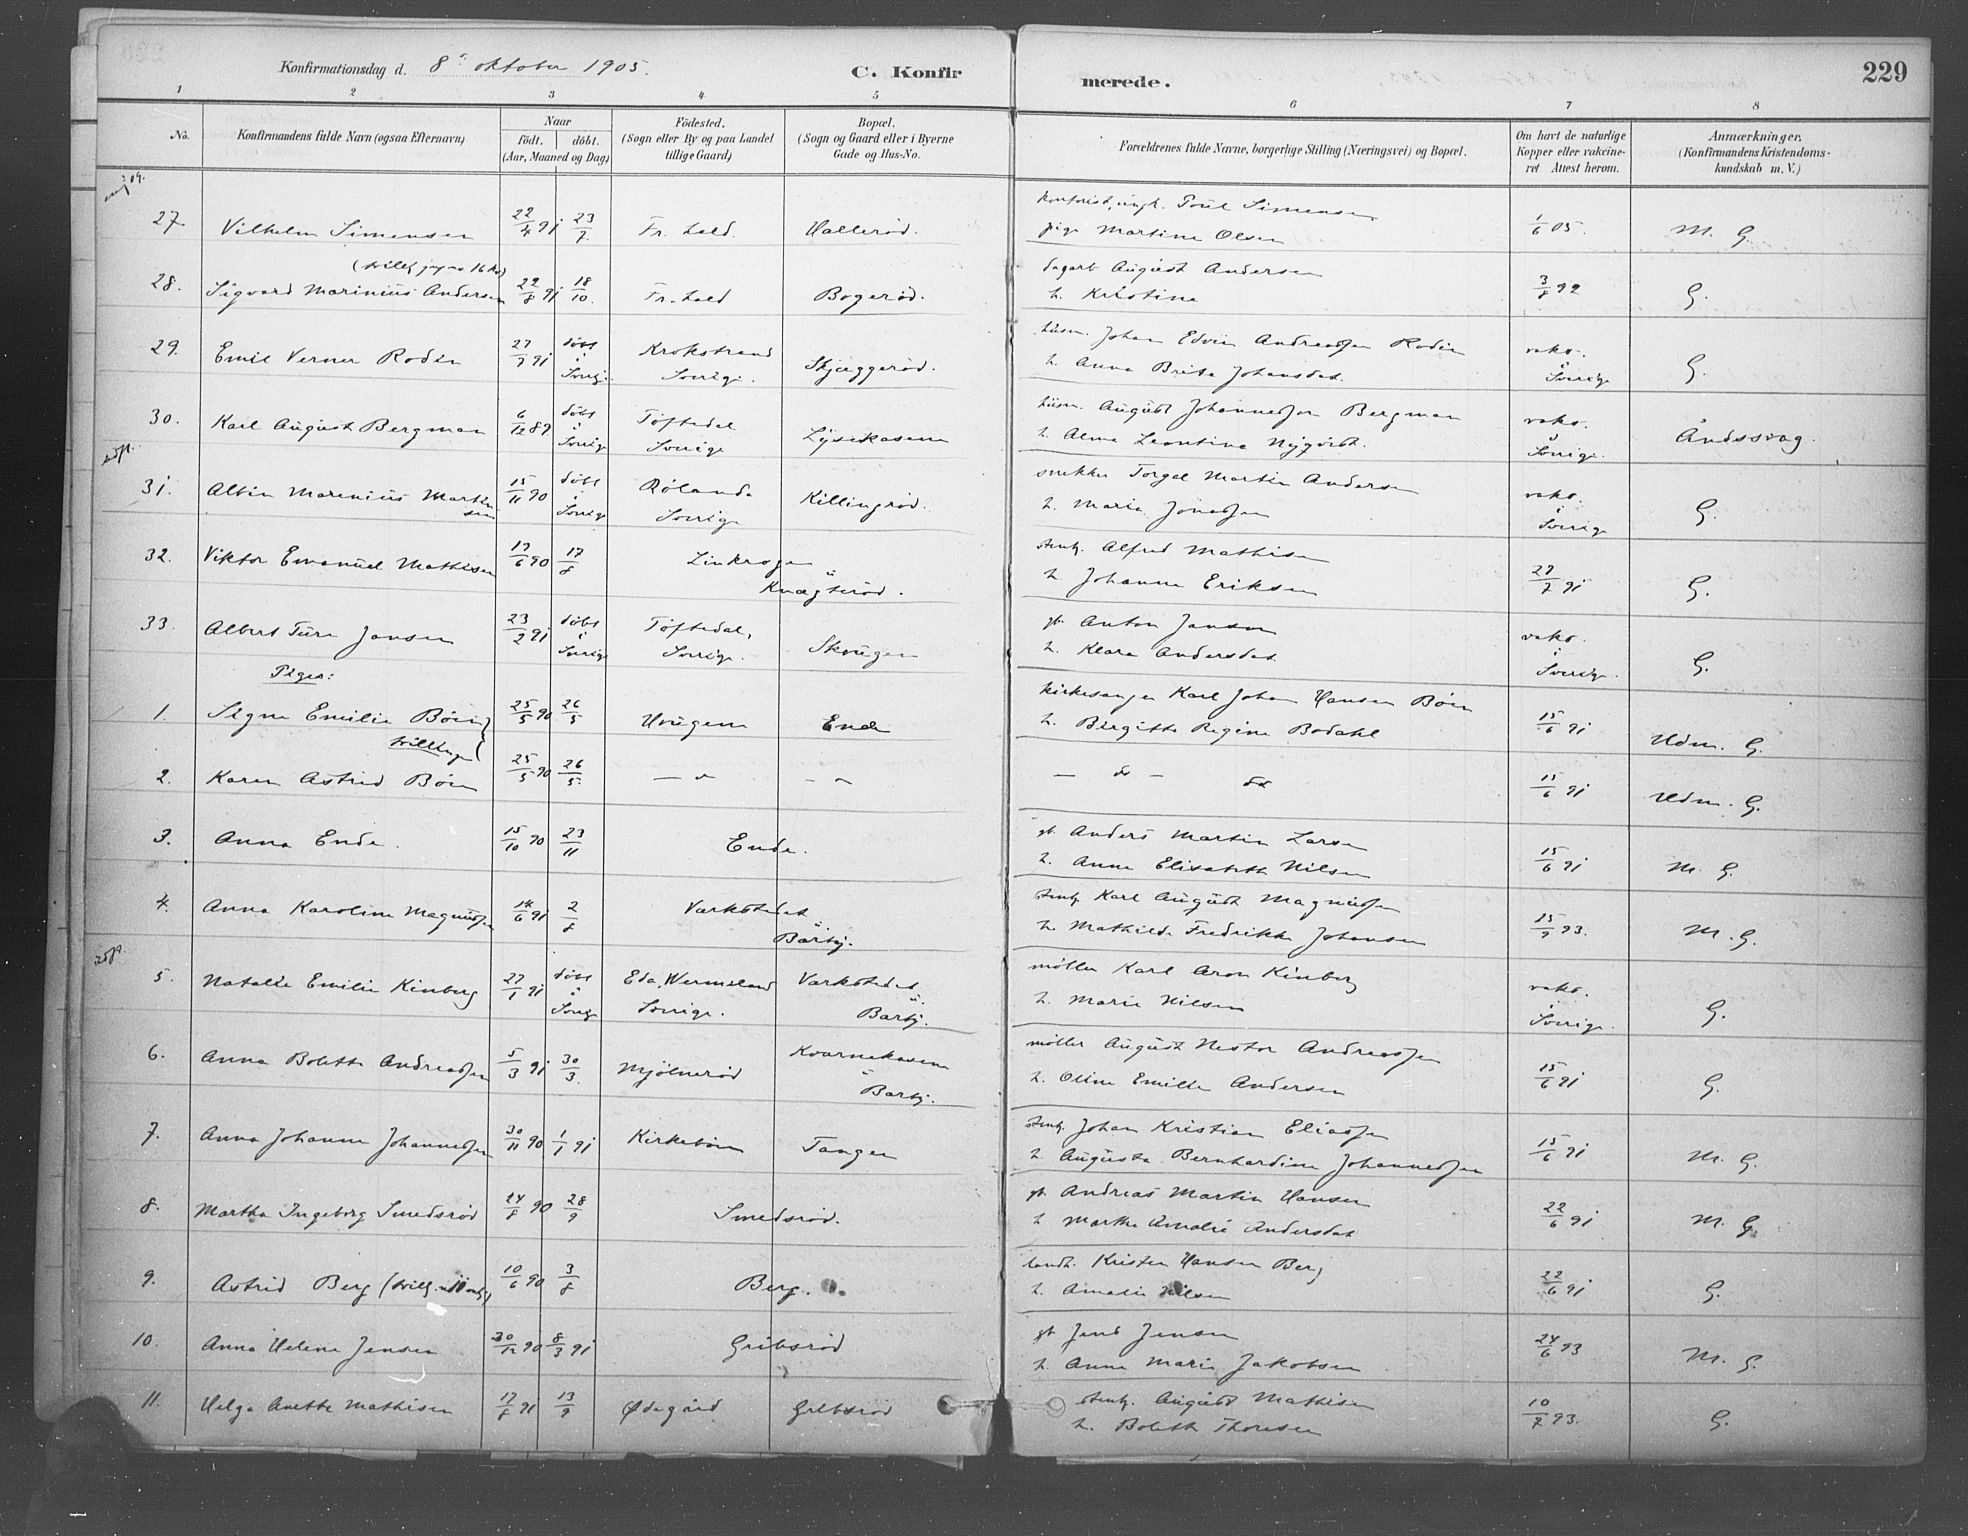 Konfirmationsdag d. 8de oktober 1905.
C. Konfirmerede.
229
1 2 3 4 5 6 7 8
No.
Konfirmandens fulde Navn (ogsaa Efternavn)
Naar
födt. döbt.
(Aar, Maaned og Dag)
Födested.
(Sogn eller By og paa Landet
tillige Gaard)
Bopæl.
(Sogn og Gaard eller i Byerne
Gade og Hus-No.
Forældrenes fulde Navne, borgerlige Stilling (Næringsvei) og Bopæl.
Om havt de naturlige
Kopper eller vakcine-
ret Attest herom.
Anmærkninger.
(Konfirmandens Kristendoms-
kundskab m. V.)
27. Vilhelm Simensen 22/4 91 23/7 Fr.hald. Hallerød. ungk. Poul Simensen 1/6 05. M. G.
pige Martine Olsen
28. Sigvard Marinius Andersen 22/8 91 18/10. Fr.hald Bogerød. dagarb August Andersen 3/8 92 G.
h. Kristine
29. Emil Verner Rodin 27/7 91 döbt i Sverig. Krokstrand Sverige. Skjæggerød. husm. Johan Edvin Andreassen Rodin vakc. i Sverige G.
h. Anna Brita Johansdat.
30. Karl August Bergman 6/12 89 döbt i Sverige Töftedal Sverige Lysekasene husm. August Johannesson Bergman vakc. i Sverige. Åndssvag.
h. Alma Leontina Nyqvist.
31. Albin Marenius Martinsen 15/11 90 döbt i Sverige Rølanda Sverige Killingrød. snekker Torgal Martin Andersen vakc. i Sverige G.
h. Marie Jonassen
32. Viktor Emanuel Mathisen 17/6 90 17/8 Linkrogen u Knægterød. stenh. Alfred Mathisen 27/7 91 G.
h. Johanne Eriksen
33. Albert Ture Jansen 23/2 91 döbt i Sverige Töftedal, Sverige. Skougen gb. Anton Jansen vakc. i Sverige. G.
h. Klara Andersdat.
Piger:
1. Signe Emilie Böen 25/5 90 26/5 Hougene Ende kirkesanger Karl Johan Hansen Böen 15/6 91 Udm. G.
tvillinger h. Birgitte Regine Bodahl
2. Karen Astrid Böen 25/5 90 26/5. — „ — „ — do — do 15/6 91 Udm. G.
3. Anna Ende. 15/10 90 23/11 Ende. gb. Anders Martin Larsen 15/6 91 M. G.
h. Anne Elisabeth Nilsen
4. Anna Karoline Magnussen 14/6 91 2/8 Værkstedet u Barby. stenh. Karl August Magnussen 15/9 93. M. G.
h. Mathilde Fredrikke Johansen
5. Natalie Emilie Kinberg 27/1 91 döbt i Sverig Eda, Wermeland Sverige. Værkstedet u. Barby. möller Karl Aron Kinberg vakc. i Sverige. G.
h. Marie Nilsen
6. Anna Bolette Andreassen 5/3 91 30/3. Mjölnerød Kvernekasen u Barby. möller August Nestor Andreassen 15/6 91 G.
h. Oline Emilie Andersen
7. Anna Johanne Johannessen 30/11 90 1/1 91 Kirkebøen Tangen stenh. Johan Kristian Eliassen 15/6 91 M. G.
h. Augusta Bernhardine Johannessen
8. Martha Ingeborg Smedsrød 24/8 90 28/9 Smedsrød. gb. Andreas Martin Hansen 22/6 91 M. G.
h. Marthe Amalie Andersdat
9. Astrid Berg 10/6 90 3/8 Berg. landh. Kristen Hansen Berg 22/6 91 G.
h. Amalie Nilsen
10. Anna Helene Jensen 30/12 90 8/3 91 Gribsrød gb Jens Jensen 24/6 93 M. G.
h. Anne Marie Jakobsen
11. Helga Anette Mathisen 17/8 91 13/9 Ødegård Gribsrød stenh. August Mathisen 10/7 93. G.
h. Bolette Thoresen